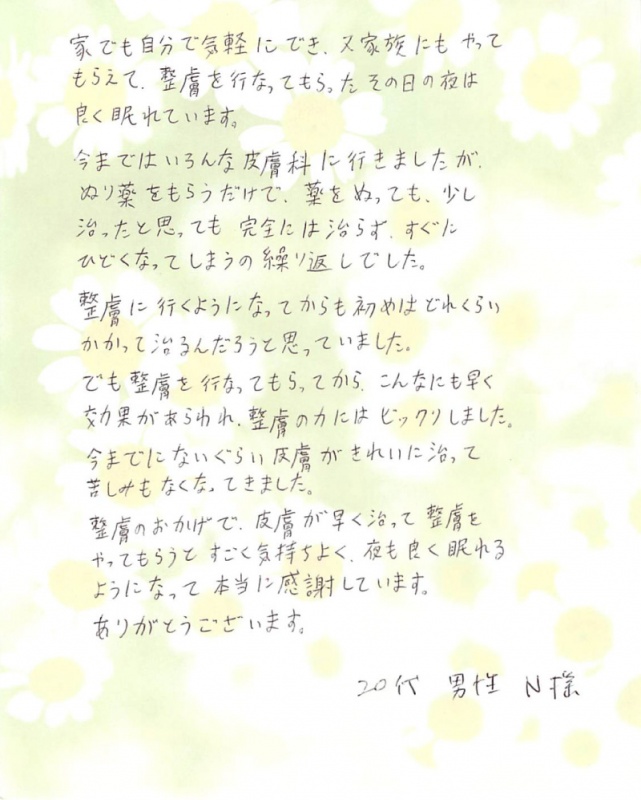 家でも自分で気軽にでき、又家族にもやって
もらえて、整膚を行なってもらったその日の夜は
良く眠れています。
今まではいろんな皮膚科に行きましたが、
ぬり薬をもらうだけで、薬をぬっても、少し
治ったと思っても完全には治らず、すぐに
ひどくなってしまうの繰り返しでした。
整膚に行くようになってからも初めはどれくらい
かかって治るんだろうと思っていました。
でも整膚を行なってもらってから、こんなにも早く
効果があらわれ、整膚の力にはビックリしました。
今までにないぐらい皮膚がきれいに治って
苦しみもなくなってきました。
整膚のおかげで、皮膚が早く治って整膚を
やってもらうとすごく気持ちよく、夜も良く眠れる
ようになって本当に感謝しています。
ありがとうございます。
20代 男性 N様